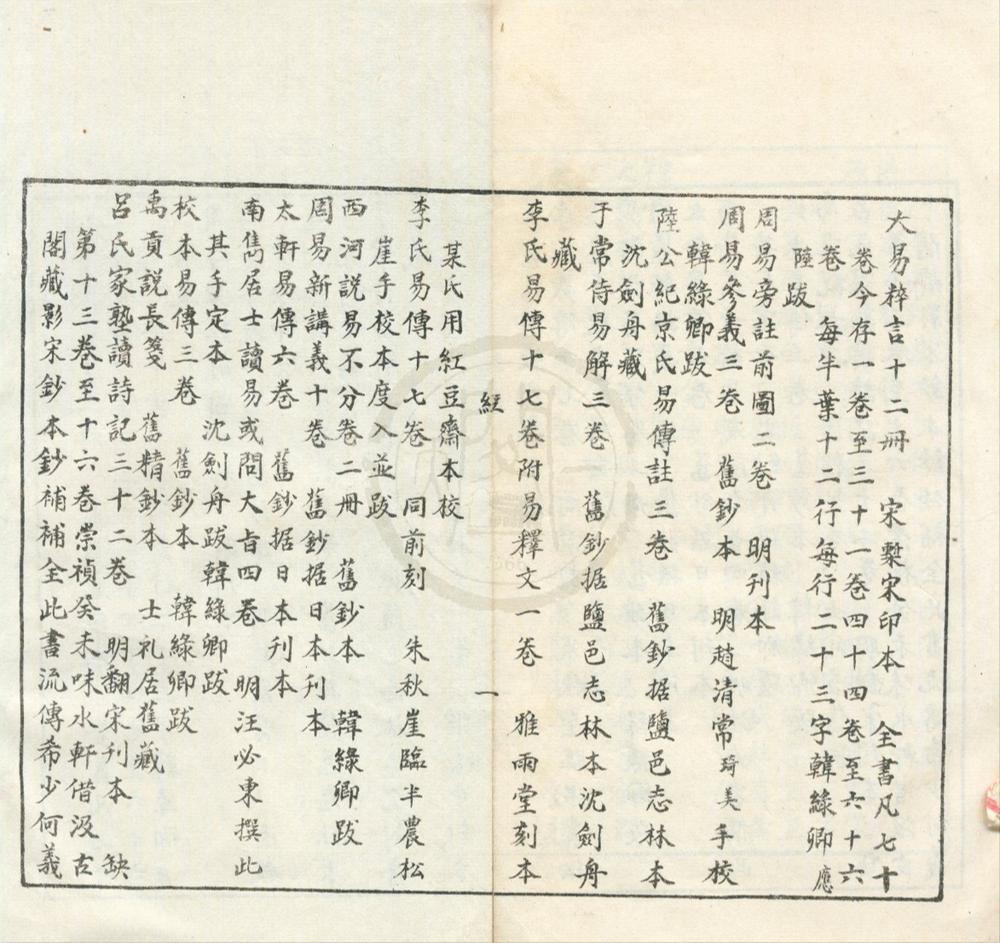 大易粹言十二冊　宋槧宋印本　全書凡七十
卷今存一卷至三十一卷四十四卷至六十六
卷每半葉十二行每行二十三字韓綠卿應
陸跋
周易旁註前圖二卷　明刊本
周易參義三卷　舊鈔本　明趙清常琦美手校
韓綠卿跋
陸公紀京氏易傳註三卷　舊鈔据鹽邑志林本
沈劍舟藏
于常侍易解三卷　舊鈔据鹽邑志林本沈劍舟
藏
李氏易傳十七卷附易釋文一卷　雅雨堂刻本
經　一
某氏用紅豆齋本校
李氏易傳十七卷　同前刻　朱秋崖臨半農松
崖手校本度入並跋
西河說易不分卷二冊　舊鈔本　韓綠卿跋
周易新講義十卷　舊鈔据日本刊本
太軒易傳六卷　舊鈔据日本刊本
南雋居士讀易或問大旨四卷　明汪必東撰此
其手定本沈劍舟跋韓綠卿跋
校本易傳三卷　舊鈔本　韓綠卿跋
禹貢說長箋　舊精鈔本　士礼居舊藏
呂氏家塾讀詩記三十二卷　明翻宋刊本　缺
第十三卷至十六卷崇禎癸未味水軒借汲古
閣藏影宋鈔本鈔補補全此書流傳希少何義